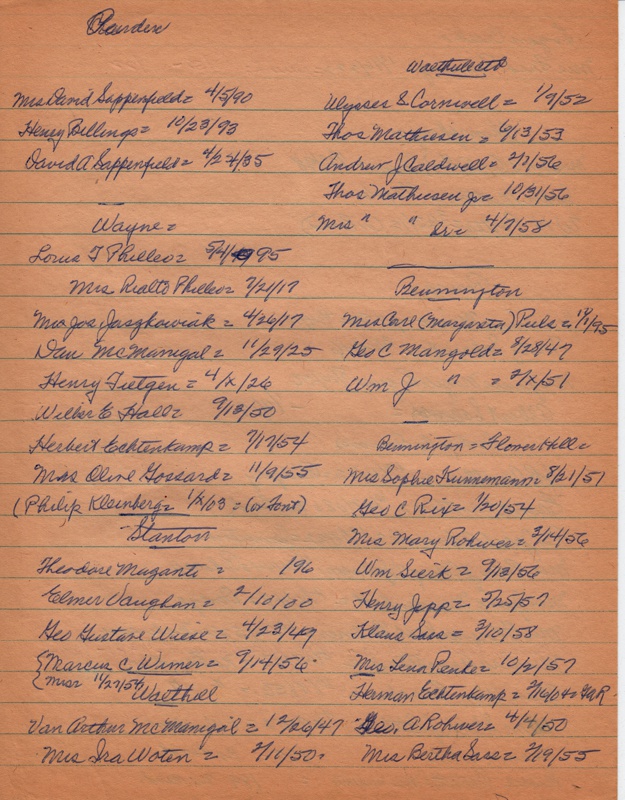 Mrs David Sappenfield = 4/5/90
Henry Billings = 10/23/93
David A Sappenfield = 2/24/35
Wayne =
Lorus T Philleo = 95
Mrs Rialto Philleo = 7/21/17
Mrs Jos Jaszkowiak = 4/26/17
Dan McManigal = 11/29/25
Henry Tietgen = 4/x/26
Wilbur E Hall = 9/13/50
Herbert Echtenkamp = 7/17/54
Mrs Olive Gossard = 11/9/55
(Philip Kleinberg = 1/x/03 = (or Font)
Stanton
Theodore = 196
Elmer Vaughan = 2/10/00
Geo Gustave Wiese = 4/23/49
{Marcus C. Wimer = 9/14/56
{Mrs 11/27/54
Waethal
Van Arthur McManigal = 12/26/47
Mrs Ira Woten = 2/11/50
Ulysses S. Cornwell = 1/9/52
Thos Mathiesen = 6/13/53
Andrew J Caldwell = 2/7/56
Thos Mathiesen Jr = 10/31/56
Mrs " " Sr = 4/7/58
Bennington
Mrs Carl (Margareta) = 95
Geo C Mangold = 8/28/47
Wm J " = 2/x/51
Bennington = Flower Hill =
Mrs Sophie Kunnemann = 8/21/51
Geo C Rix = 1/20/54
Mrs Mary Rohwer = 2/14/56
Wm Sierk = 9/13/56
Henry Jepp = 5/25/57
Klaus Sass = 3/10/58
Mrs Lena Penke = 10/2/57
Herman Echtenkamp = 2/16/04 =
Geo. A Rohwer = 4/4/50
Mrs Bertha Sass = 2/19/55